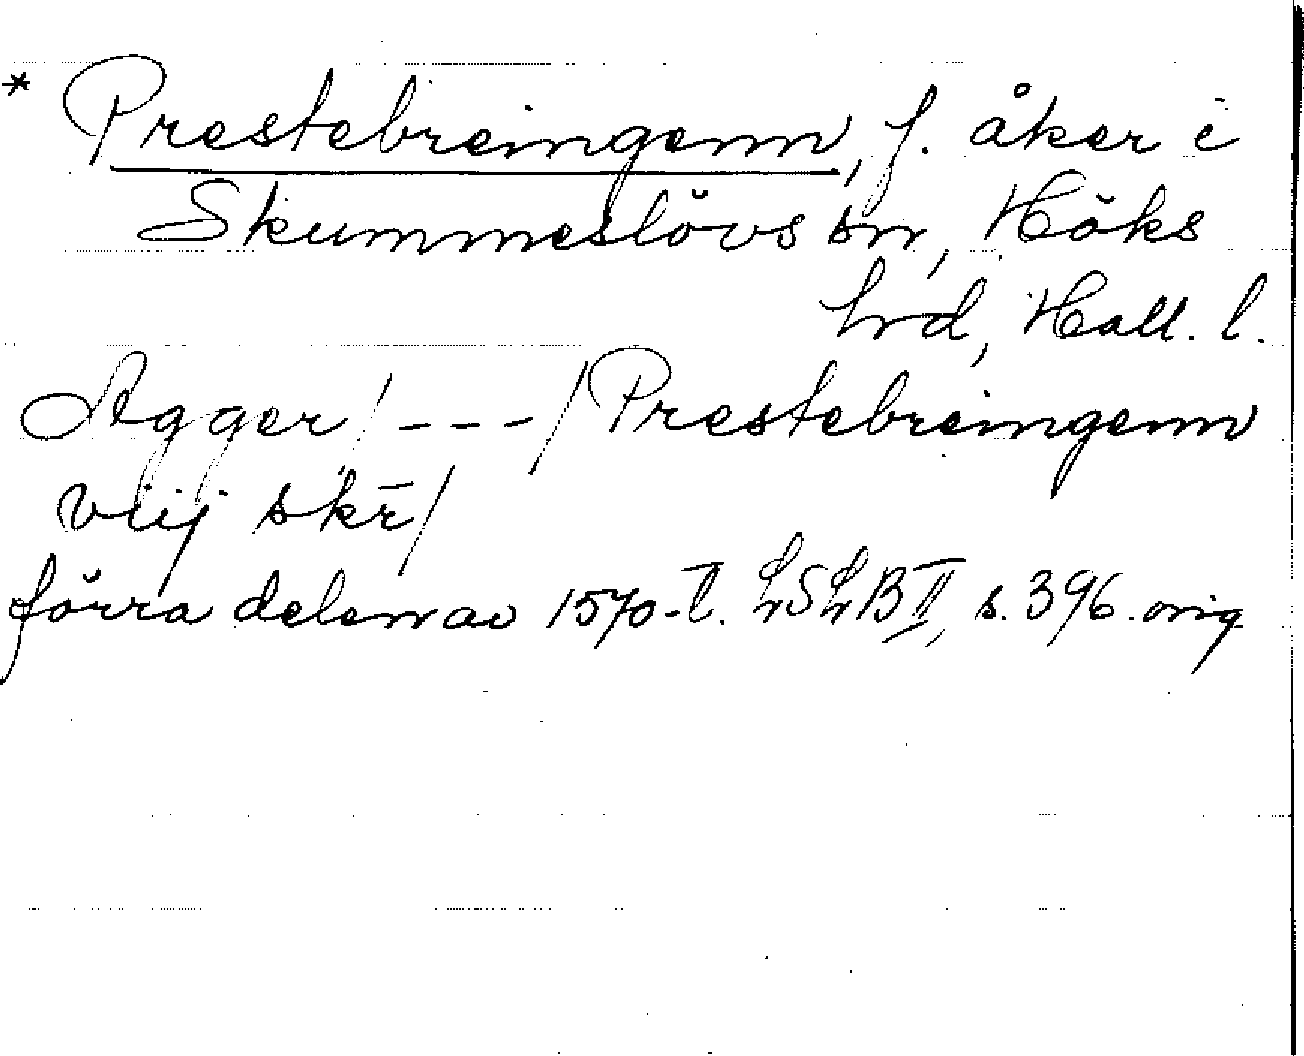 * Prestebreingenn, f. åker i
Skummeslövs sn, Höks
hrd, Hall. l.
Agger / - - - / Prestebreingenn
viij skr̄ /
förra delen av 1570-t. LSLB II, s. 396. orig